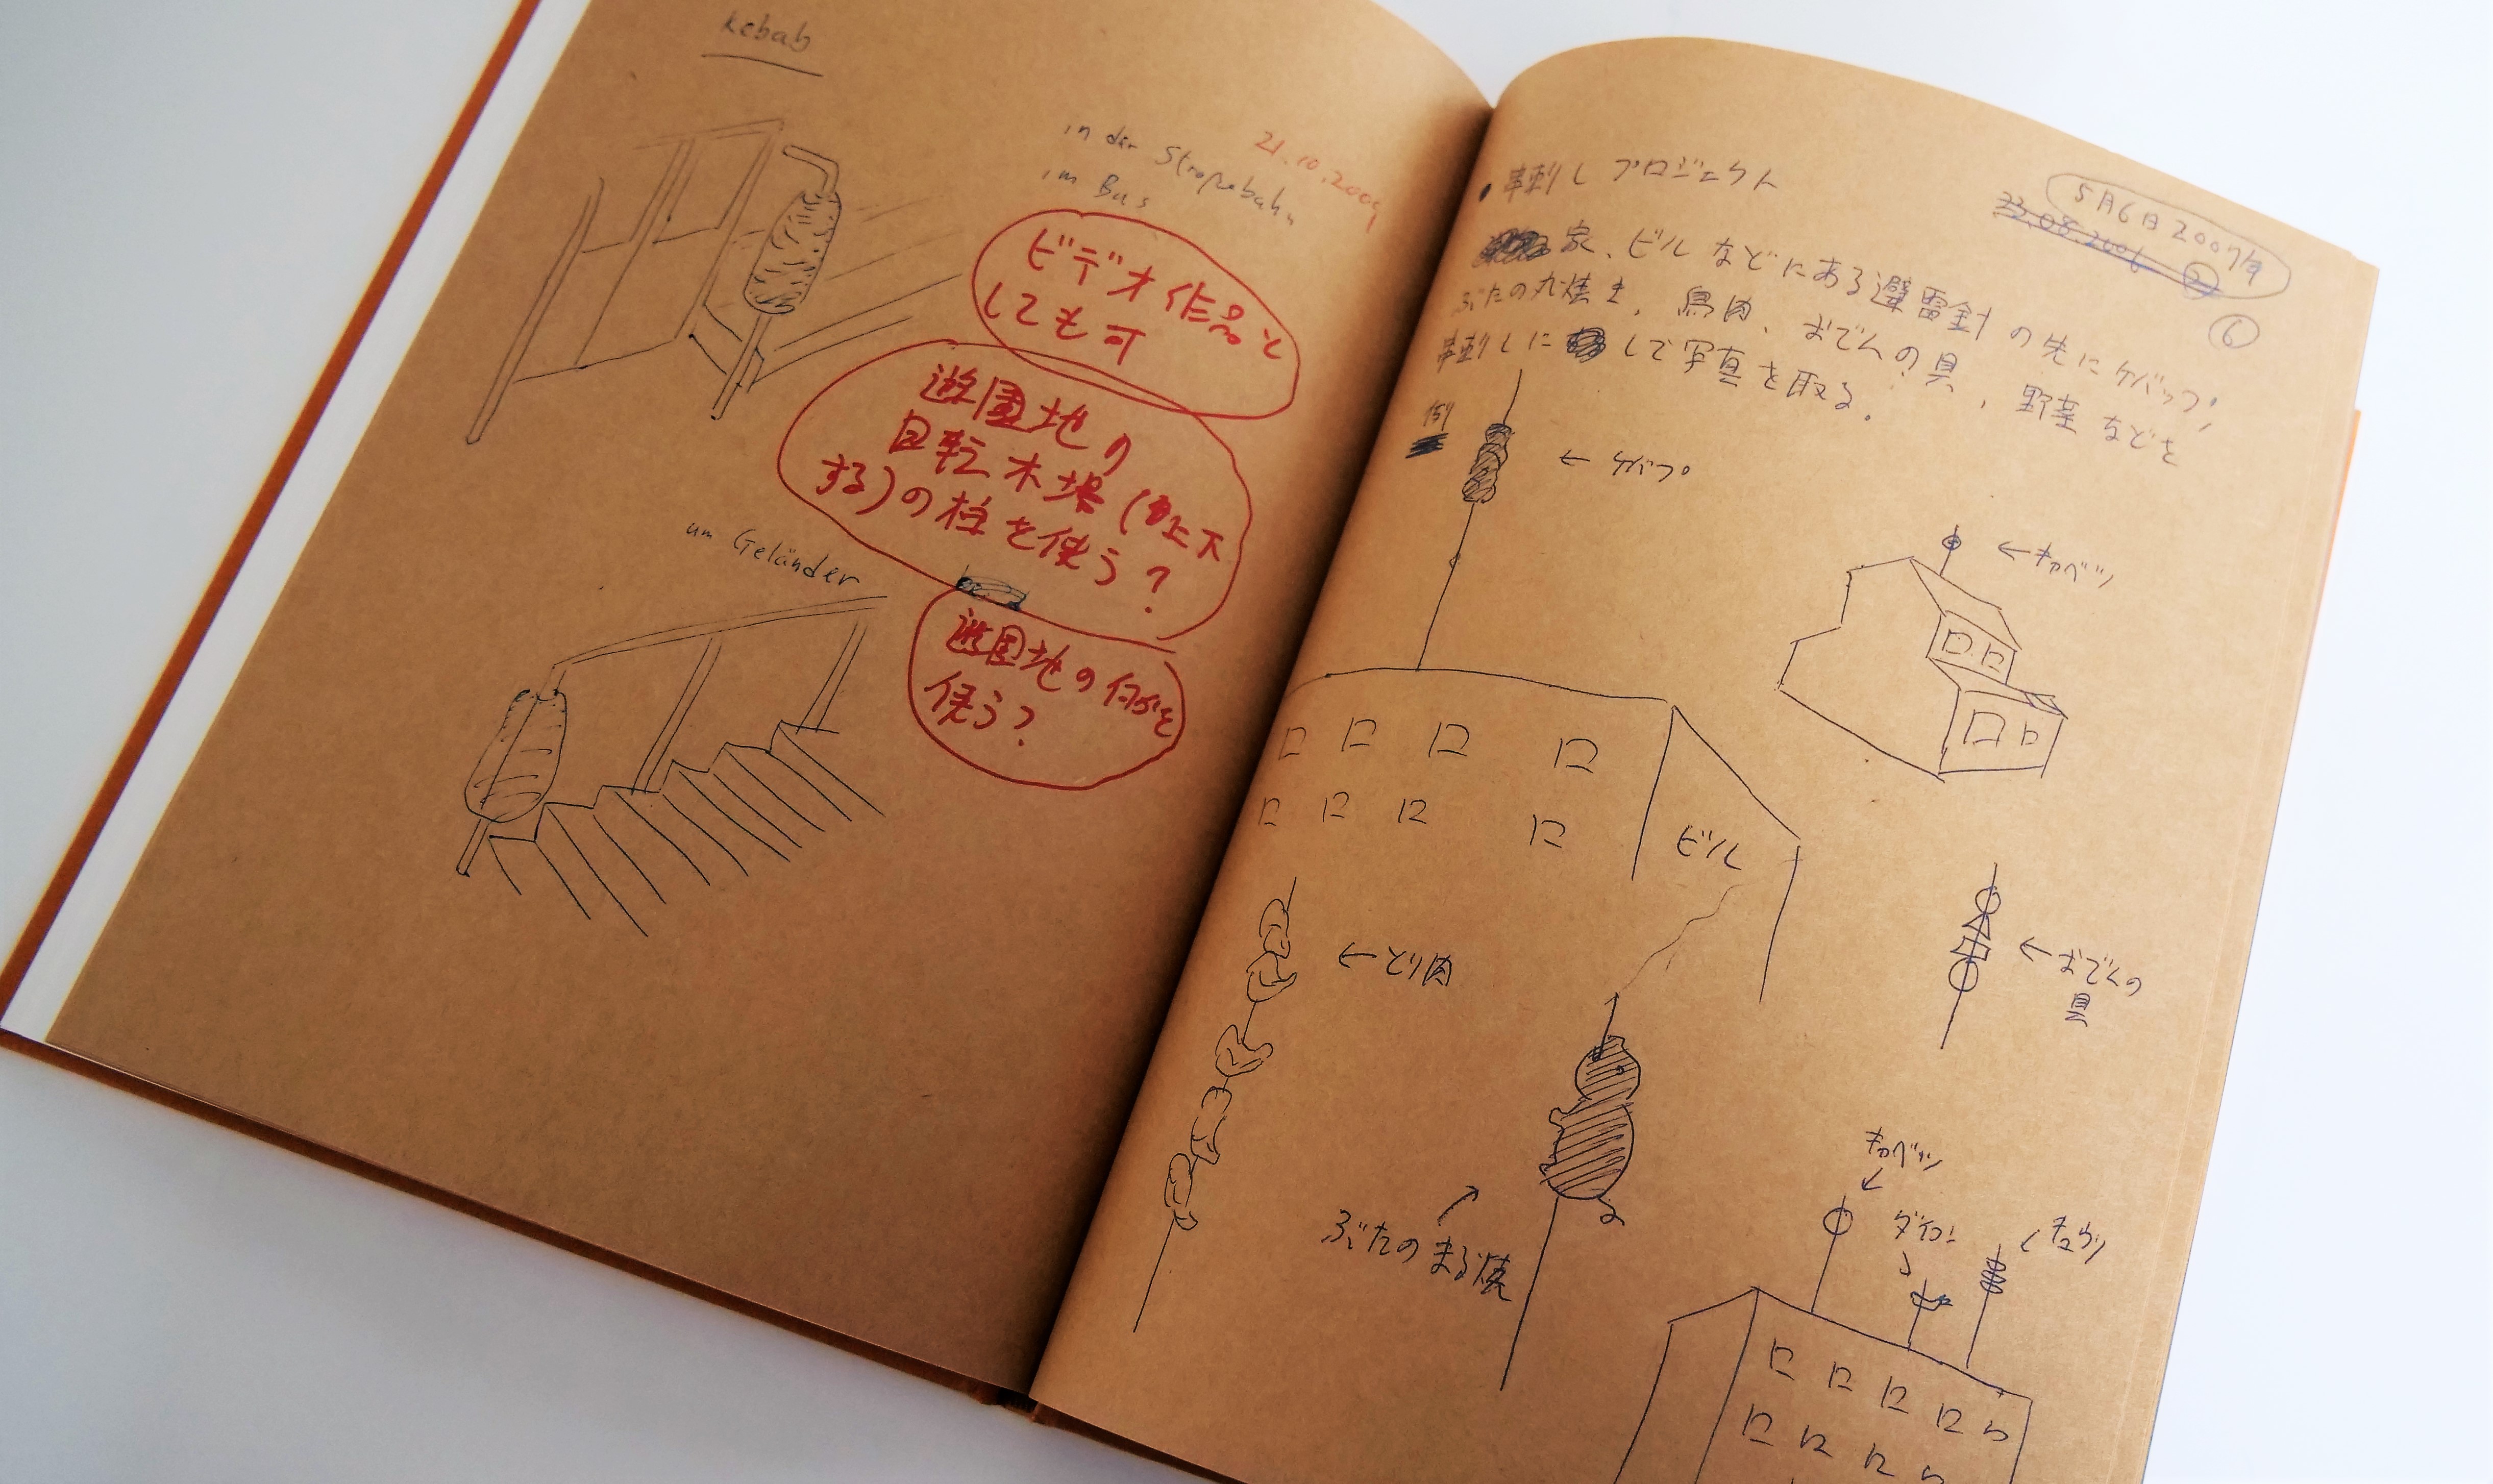 kebab
21.10.2009
in der Straßebahn
im Bus
ビデオ作品と
しても可
遊園地の
回転木場(上下
する)の柱を使う?
um Geländer
遊園地の何かを
使う?
・串刺しプロジェクト
5月6日2007年
22.08.2006
⑥
家、ビルなどにある避雷針の先にケバップ、
ぶたの丸焼き、鳥肉、おでんの具、野菜などを
串刺しにしで写真を取る。
例
←ケバプ
←キャベツ
ビル
←とり肉
←おでんの
具
ぶたのまる焼
キャベツ
ダイコン
キュウリ